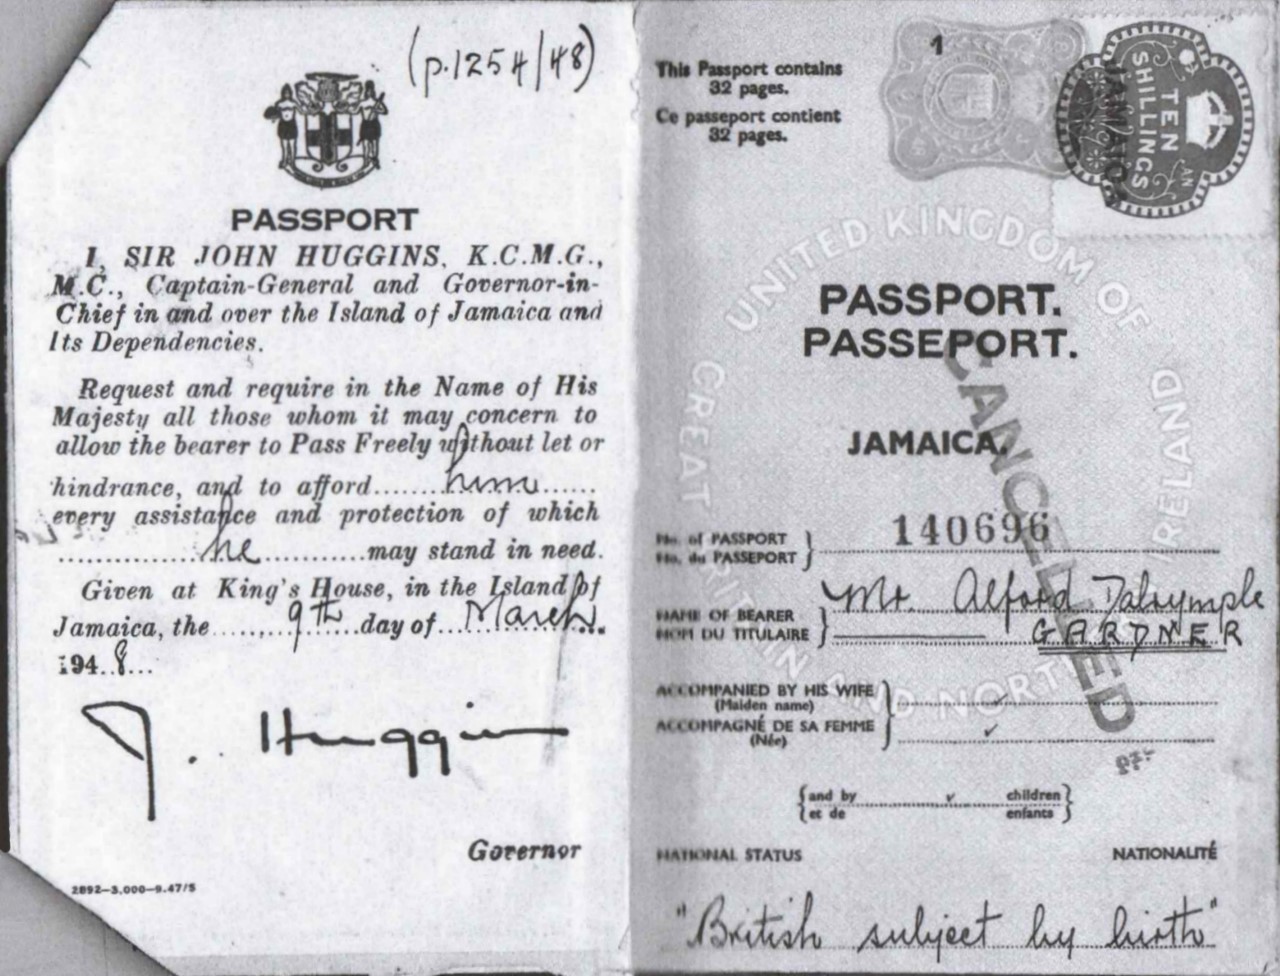 (p.1254/48)
PASSPORT
I, SIR JOHN HUGGINS, K.C.M.G.,
M.C., Captain-General and Governor-in-
Chief in and over the Island of Jamaica and
Its Dependencies.
Request and require in the Name of His
Majesty all those whom it may concern to
allow the bearer to Pass Freely without let or
hindrance, and to afford......him......
every assistance and protection of which
......he......may stand in need.
Given at King's House, in the Island of
Jamaica, the ......9th......day of......March......
194..8...
J. Huggins
Governor
2892—3,000—9.47/S
1
This Passport contains
32 pages.
Ce passeport contient
32 pages.
TEN
SHILLINGS
JAMAICA
UNITED KINGDOM OF
GREAT BRITAIN AND NORTHERN IRELAND
PASSPORT.
PASSEPORT.
CANCELLED
JAMAICA.
No. of PASSPORT
No. du PASSEPORT
140696
NAME OF BEARER
NOM DU TITULAIRE
Mr. Alford Dalrymple
GARDNER
ACCOMPANIED BY HIS WIFE
(Maiden name)
ACCOMPAGNÉ DE SA FEMME
(Née)
and by children
et de enfants
NATIONAL STATUS NATIONALITÉ
"British subject by birth"